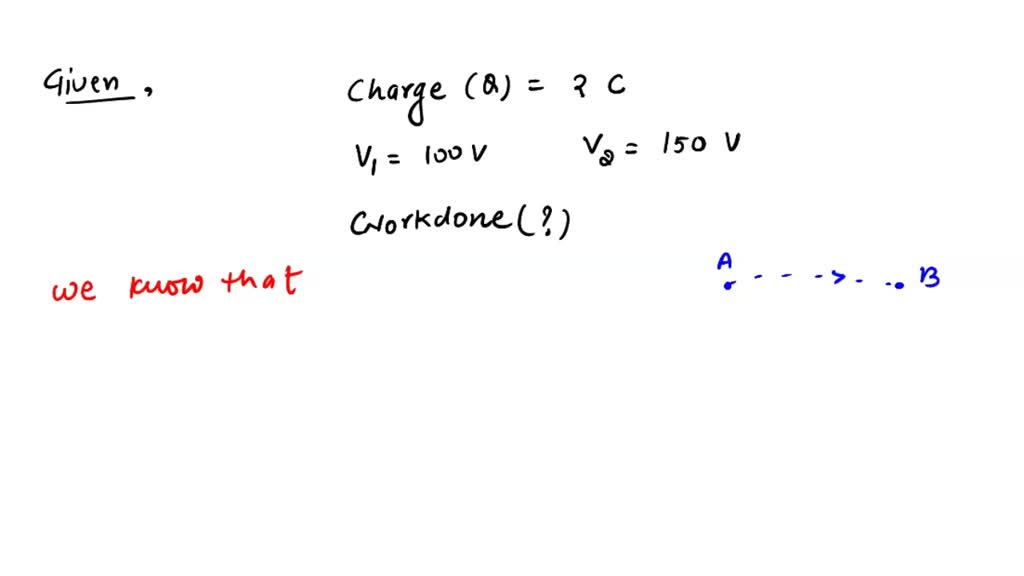 Given, Charge (Q) = 2 C
V₁ = 100 V V₂ = 150 V
Workdone (?)
we know that A B